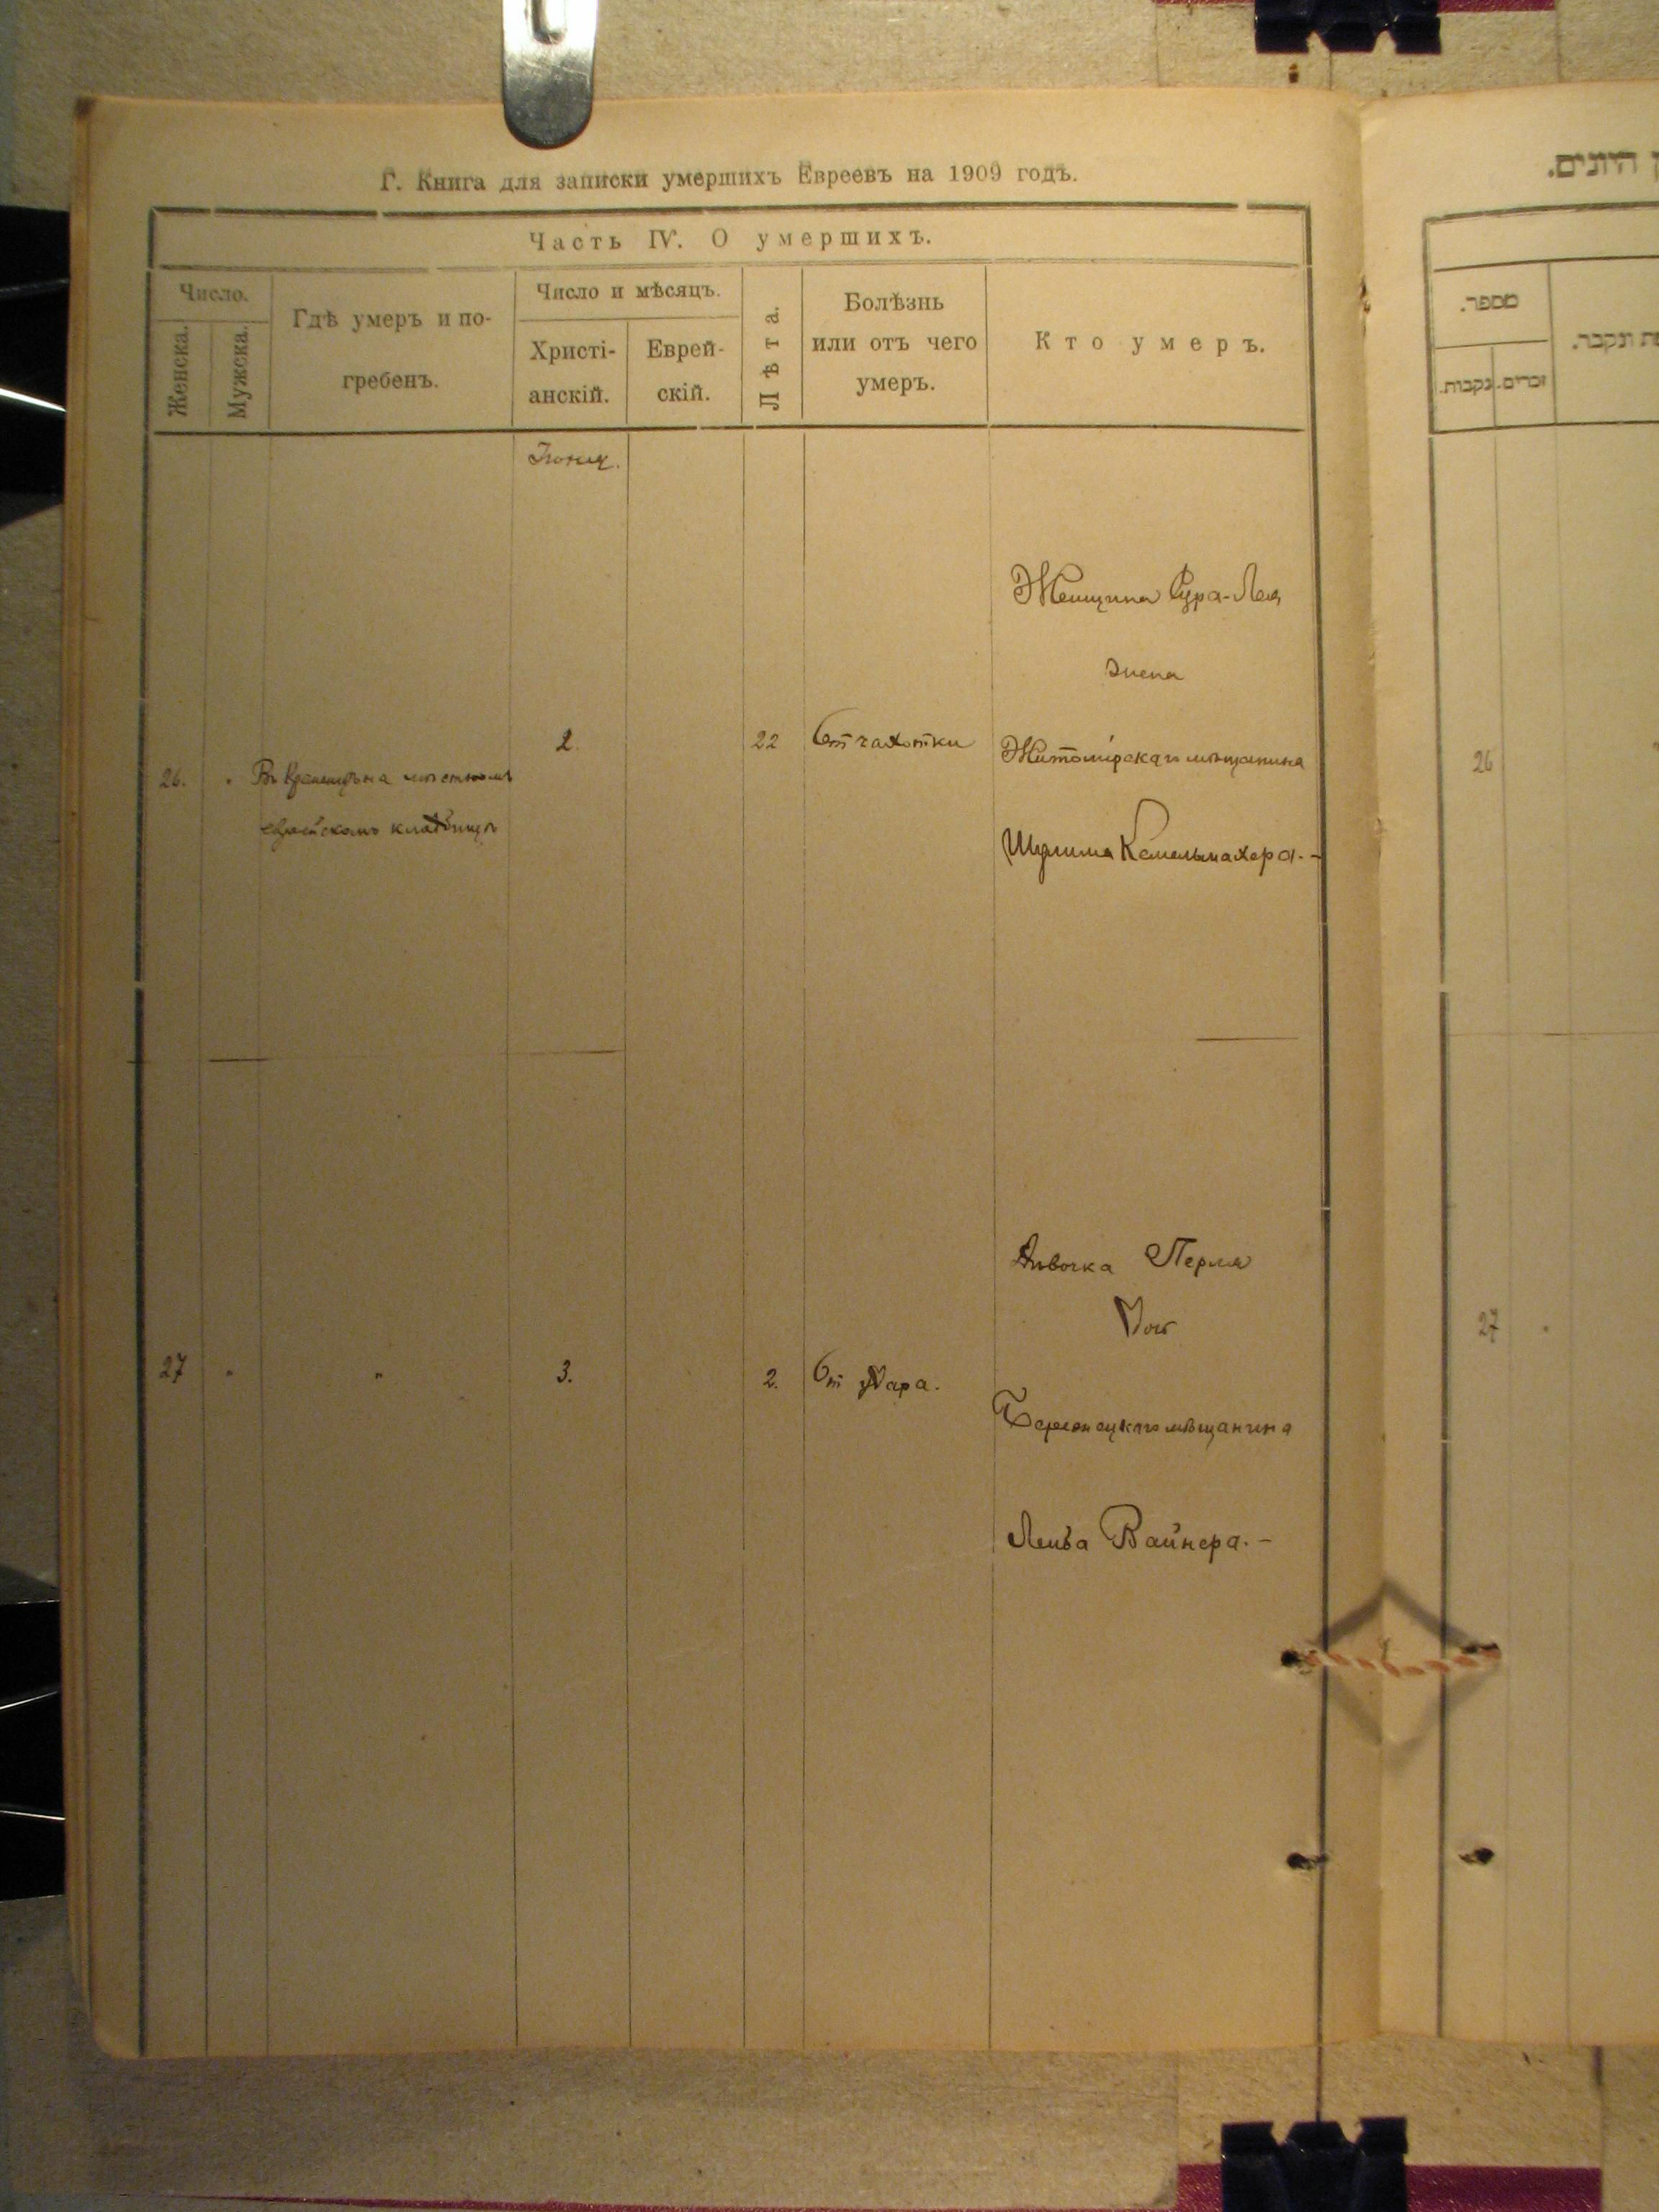 Г. Книга для записки умершихъ Евреевъ на 1909 годъ.
Часть IV. О умершихъ.
Число.
Женска.
Мужска.
Гдѣ умеръ и по-
гребенъ.
Число и мѣсяцъ.
Христі-
анскій.
Еврей-
скій.
Лѣта.
Болѣзнь
или отъ чего
умеръ.
Кто умеръ.
Іюня.
26.
Въ Кременцѣ на мѣстномъ
еврейскомъ кладбищѣ
2
22
От чахотки
Женщина Сура-Лея
жена
Житомірскаго мѣщанина
Шулима Кемельмахера. -
27
"
"
3.
2.
От жара.
Дѣвочка Перля
дочь
мѣщанина
Лейба Вайнера. -
היתים.
מספר.
זכרים.
נקבות.
ונקבר.
26
27